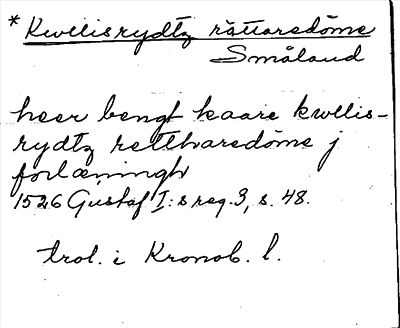 * Kwllisrydtz rättaredöme
Småland
heer bengt kaare kwllis-
rydtz rettharedöme j
forlæningh
1526 Gustaf I:s reg. 3, s. 48.
trol. i Kronob. l.